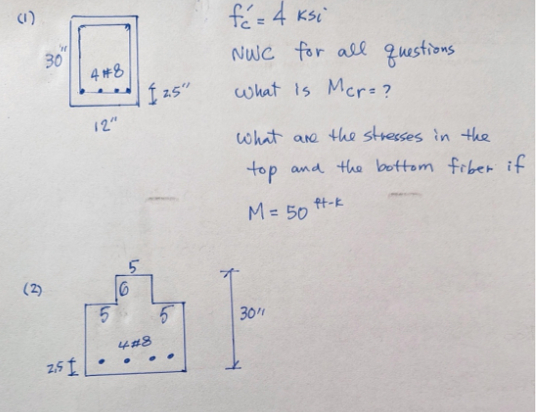 (1)
f'c = 4 ksi
NWC for all questions
What is Mcr = ?
What are the stresses in the
top and the bottom fiber if
M = 50 ft-k
30"
4#8
2.5"
12"
(2)
5
6
5 5
4#8
2.5
30"